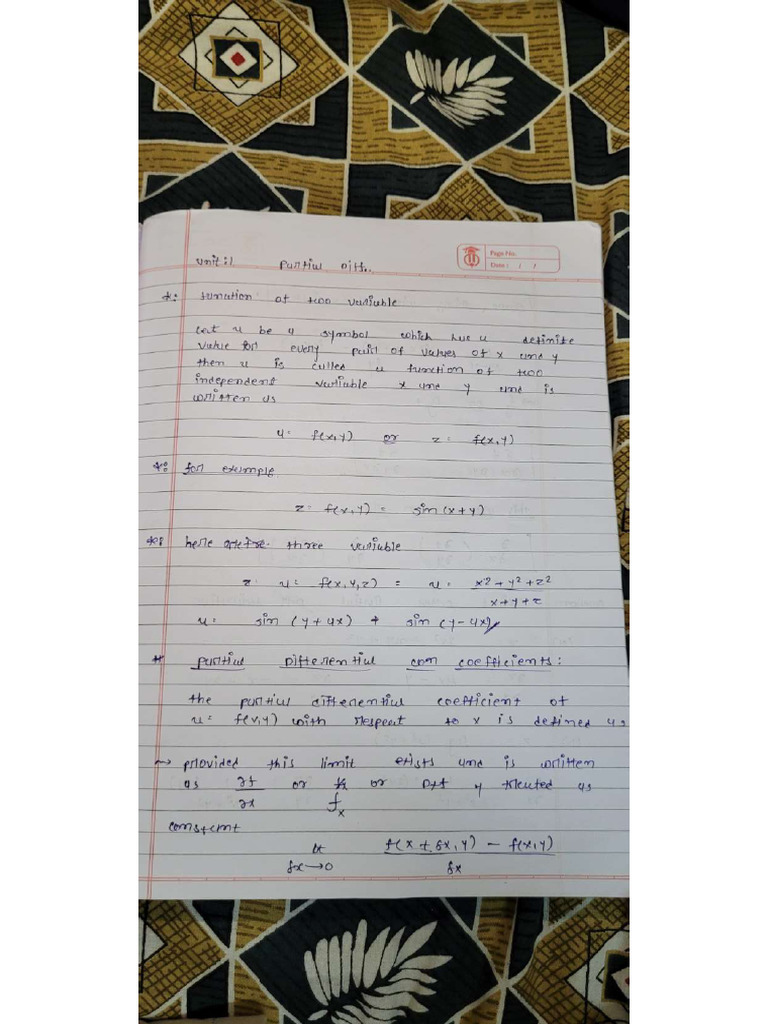 Page No.
Date : / /
Unit:1 Partial Diff..
*: function of two variable
Let u be a symbol which has a definite
value for every pair of values of x and y
then u is called a function of two
independent variable x and y and is
written as
u= f(x,y) or z= f(x,y)
*: for example
z= f(x,y) = sin(x+y)
*: here three variable
z= u= f(x,y,z) = u= x2+y2+z2 / x+y+z
u= sin (y+ax) + sin (y-ax)
* partial Differential com coefficients:
the partial differential coefficient of
u= f(x,y) with respect to x is defined as
→ provided this limit exists and is written
as ∂f/∂x or fx or Dxf y treated as
fx
constant
lt δx→0 f(x+δx,y) - f(x,y) / δx